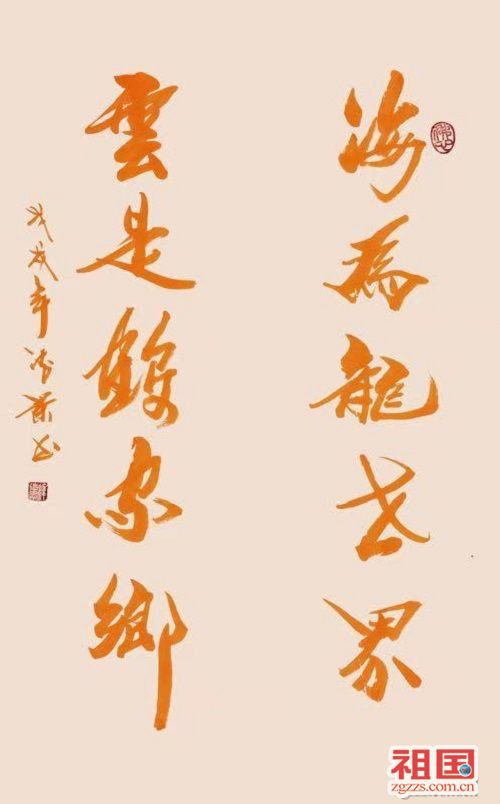 海為龍世界
雲是鶴家鄉
戊戌年
祖国
zgzzs.com.cn